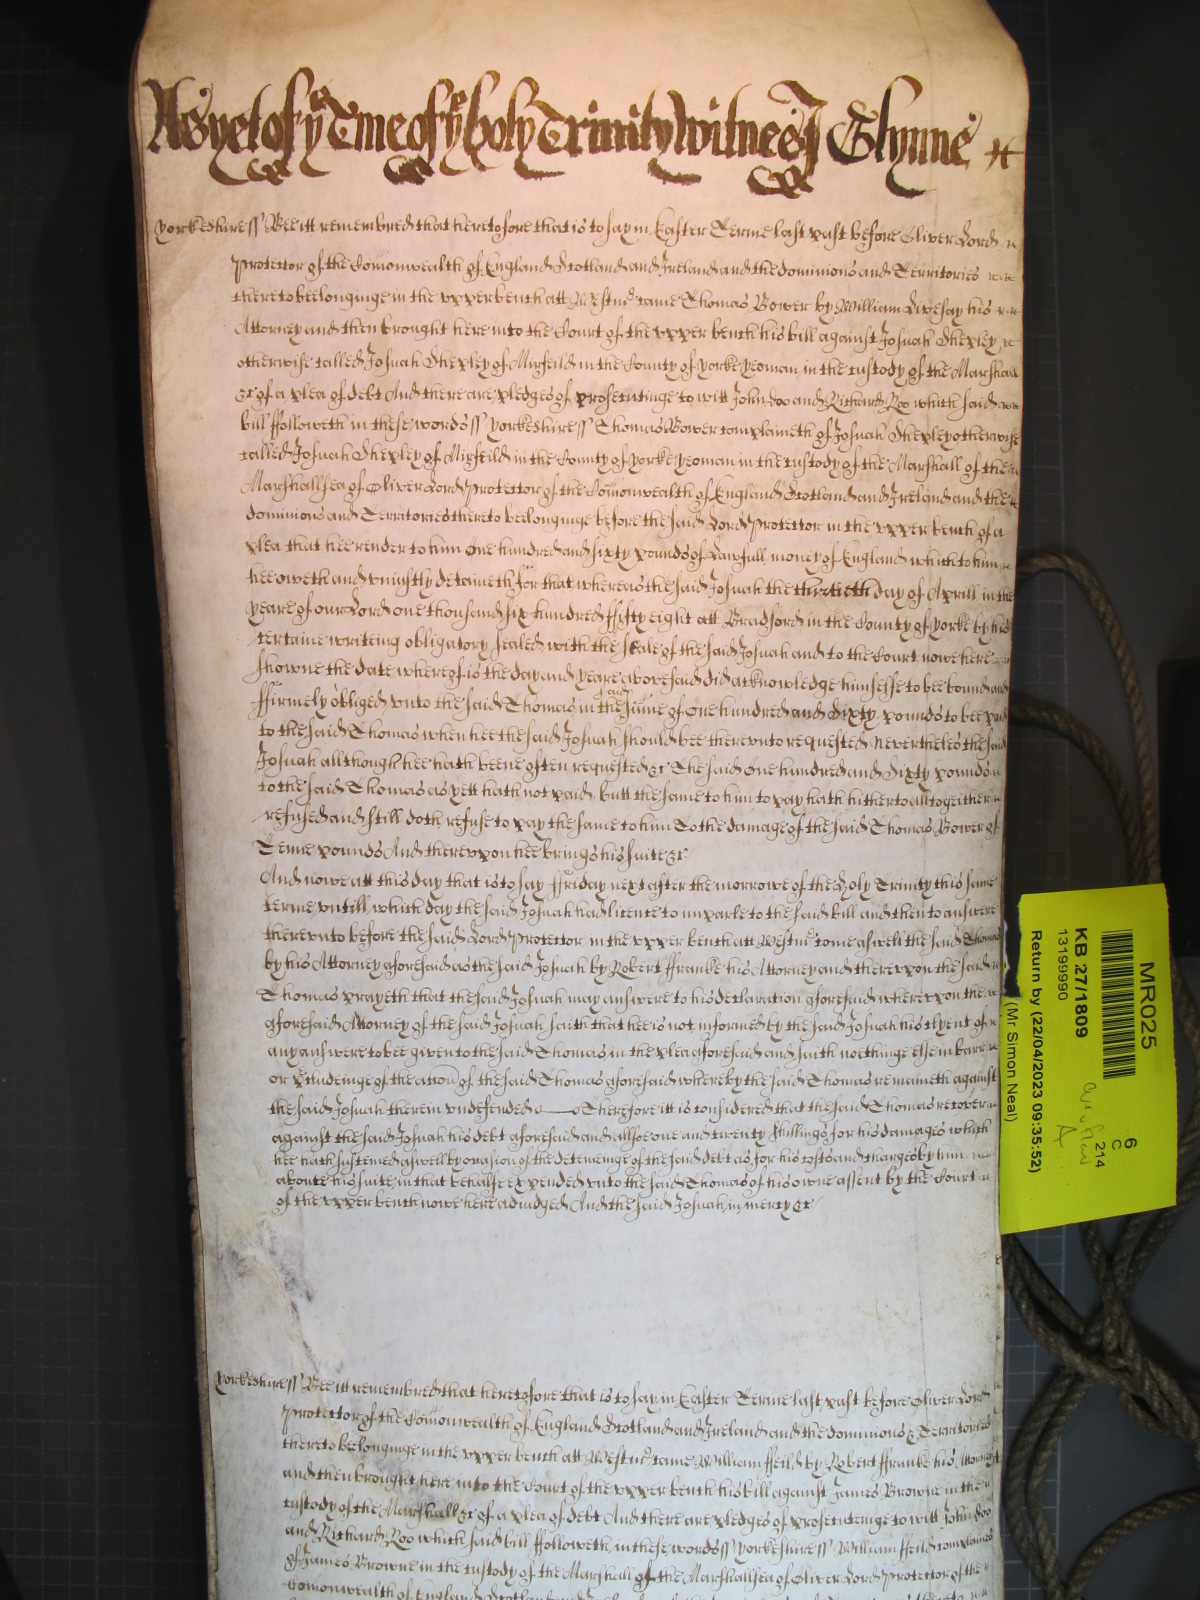 As yet of ye Tme of ye holy Trinity Witnes J Glynne
Yorkeshire ss Bee itt remembred that heretofore that is to say in Easter Terme last past before Oliver Lord
Protector of the Comonwealth of England Scotland and Ireland and the dominions and Territories
thereto beelonginge in the vpper bench att Westmr came Thomas Bower by William Livesay his
Attorney and then brought here into the Court of the vpper bench his bill against Josuah Shepley
otherwise called Josuah Shepley of Mirfeild in the County of Yorke yeoman in the custody of the Marshall
&c of a plea of debt And there are pledges of prosecutinge to witt John Doo and Richard Roo which said
bill ffolloweth in these words ss Yorkeshire ss Thomas Bower complaineth of Josuah Shepley otherwise
called Josuah Shepley of Mirfeild in the County of Yorke yeoman in the custody of the Marshall of the
Marshallsea of Oliver Lord Protector of the Comonwealth of England Scotland and Ireland and the
dominions and Territories thereto beelonginge before the said Lord Protector in the vpper bench of a
plea that hee render to him One hundred and sixty pounds of Lawfull money of England which to him
hee oweth and vniustly detaineth for that whereas the said Josuah the thirtieth day of Aprill in the
yeare of our Lord one thousand six hundred ffifty eight att Bradford in the County of Yorke by his
certaine writeing obligatory sealed with the seale of the said Josuah and to the Court nowe here
showne the date whereof is the day and yeare abovesaid did acknowledge himselfe to bee bound and
ffirmely obliged vnto the said Thomas in the said sume of One hundred and Sixty pounds to bee paid
to the said Thomas when hee the said Josuah should bee therevnto requested Neverthelesthe said
Josuah allthough hee hath beene often requested &c The said One hundred and Sixty pounds
to the said Thomas as yett hath not paid butt the same to him to pay hath hitherto alltogeither
refused and still doth refuse to pay the same to him To the damage of the said Thomas Bower of
Tenne pounds And therevpon hee brings his suite &c
And nowe att this day that is to say ffriday next after the morrowe of the Holy Trinity this same
terme vntill which day the said Josuah had licence to imparle to the said bill and then to answere
therevnto before the said Lord Protector in the vpper bench att Westmr come aswell the said Thomas
by his Attorney aforesaid as the said Josuah by Robert ffranke his Attorney and therevpon the said
Thomas prayeth that the said Josuah may answere to his declaration aforesaid wherevpon the
aforesaid Attorney of the said Josuah saith that hee is not informed by the said Josuah his clyent of
any answere to bee given to the said Thomas in the plea aforesaid and saith noethinge else in barr
or of the accon of the said Thomas aforesaid whereby the said Thomas remaineth against
the said Josuah therein vndefended Therefore itt is considered that the said Thomas recover
against the said Josuah his debt aforesaid and allsoe one and twenty shillings for his damages which
hee hath susteined aswell by occasion of the deteineinge of the said debt as for his costs and charges by him
aboute his suite in that behalfe expended vnto the said Thomas of his owne assent by the Court
of the vpper bench nowe here adiudged And the said Josuah in mercy &c
Yorkeshire ss Bee itt remembred that heretofore that is to say in Easter Terme last past before Oliver Lord
Protector of the Comonwealth of England Scotland and Ireland and the dominions & Territories
thereto beelonginge in the vpper bench att Westmr came William ffeild by Robert ffranke his Attorney
and then brought here into the Court of the vpper bench his bill against James Browne in the
custody of the Marshall &c of a plea of debt And there are pledges of prosecuteinge to witt John Doo
and Richard Roo which said bill ffolloweth in these words ss Yorkeshire ss William ffeild complaines
of James Browne in the custody of the Marshall of the Marshallsea of Oliver Lord Protector of the
Comonwealth of England Scotland and
MR025
6
C
214
KB 27/1809
13199990
Return by (22/04/2023 09:35:52)
(Mr Simon Neal)